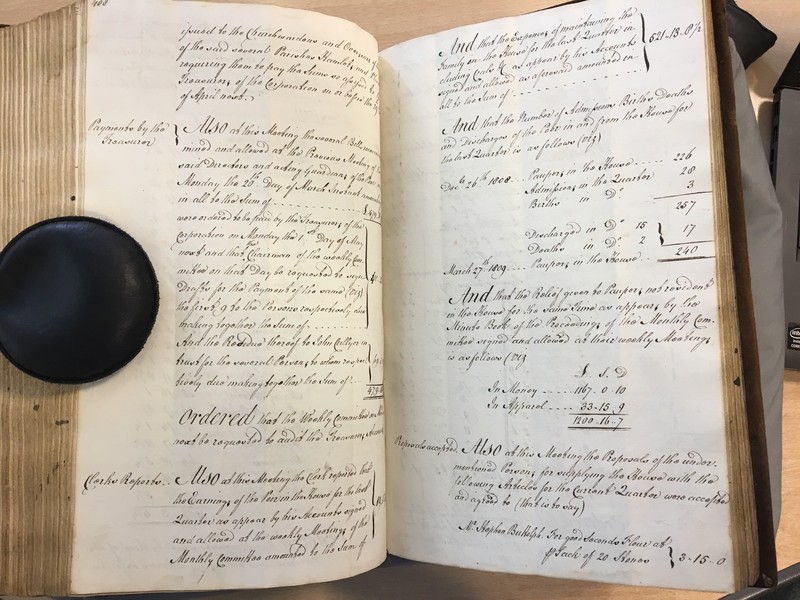 408
issued to the Churchwardens and Overseers of
of the said several Parishes Hamlets and
requiring them to pay the Sums so assessed to
Treasurer of the Corporation on or before the
of April next.
Payments by the
Treasurer
Also at this Meeting the several Bills
mined and allowed at the Previous Meeting of
said Directors and acting Guardians of the Poor
Monday the 20th Day of March Instant
in all to the Sum of
were ordered to be paid by the Treasurer of the
Corporation on Monday the 1st Day of May
next and the Chairman of the weekly Com
mittee on that Day be requested to sign
Drafts for the Payment of the same (Viz)
the first 9 to the Persons respectively due
making together the Sum of
And the Residue thereof to John Cullyer in
trust for the several Persons to whom respec
tively due making together the Sum of
Ordered that the Weekly Committee
next be requested to audit the Treasurers Accounts
Clerks Reports.
Also at this Meeting the Clerk reported that
the Earnings of the Poor in the House for the last
Quarter as appear by his Accounts signed
and allowed at the weekly Meetings of the
Monthly Committee amounted to the Sum of
And that the Expences of maintaining the
Family in the House for the last Quarter in
cluding Coals &c as appear by his Accounts
signed and allowed as aforesaid amounted in
all to the Sum of
521-13-8½
And that the Number of Admissions Births Deaths
and Discharges of the Poor in and from the House for
the last Quarter is as follows (Viz)
Decr 26th 1808 Paupers in the House 226
Admissions in the Quarter 28
Births in Do 3
257
Discharged in Do 15
Deaths in Do 2
17
March 27th 1809. Paupers in the House 240
And that the Relief given to Paupers not resident
in the House for the same time as appears by the
Minute Book of the Proceedings of the Monthly Com
mittee signed and allowed at their weekly Meetings
is as follows (Viz)
£. S. D
In Money 1167.0.10
In Apparel 33-15.9
1200.16-7
Proposals accepted.
Also at this Meeting the Proposals of the under
mentioned Persons for supplying the House with the
following Articles for the Current Quarter were accepted
and agreed to (that is to say)
Mr Stephen For good Seconds Flour at
Sack of 20 Stones 3-15-0